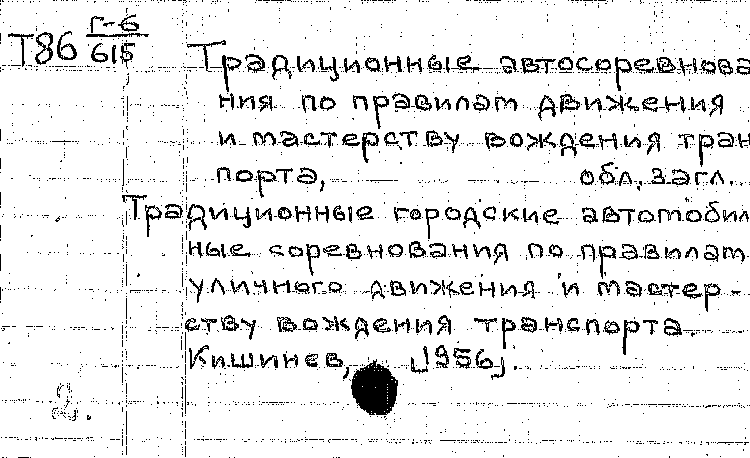 Т86 Г-6/615
Традиционные автосоревнова
ния по правилам движения
и мастерству вождения тран
порта, обл. загл.
Традиционные городские автомобил
ные соревнования по правилам
уличного движения и мастер-
ству вождения транспорта.
Кишинев, [1956].
2.